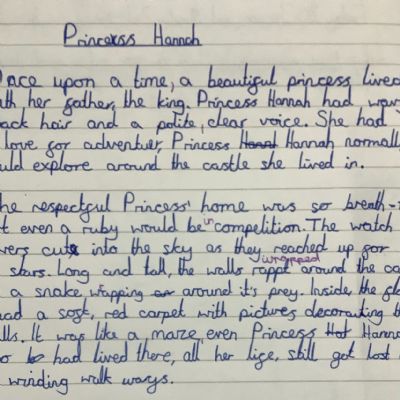 Princess Hannah
Once upon a time, a beautiful princess lived
her gather, the king. Princess Hannah had wav
ack hair and a polite, clear voice. She had
love gor adventuer, Princess Hannah normall
uld explore around the castle she lived in.
he respectgul Princess' home was so breath-
t even a ruby would be in competition. The watch
ers cuts into the sky as they reached up gor
stars. Long and tall, the walls rappt wrapped around the ca
a snake, wrapping around it's prey. Inside, the
had a sogt, red carpet with pictures decorating
lls. It was like a maze, even Princess Hanna
had lived there, all her lige, still got lost
winding walk ways.